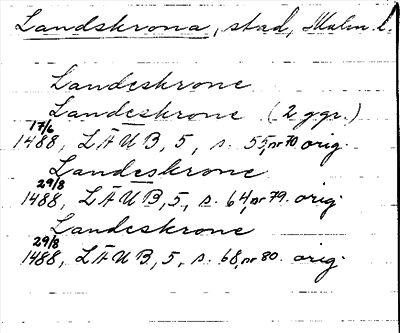 Landskrona, stad, Malm. l.
Landeskrone
Landeskrone (2 ggr.)
17/6
1488, LÄUB, 5, s. 55, nr 70 orig.
Landeskrone
29/8
1488, LÄUB, 5, s. 64, nr 79. orig.
Landeskrone
29/8
1488, LÄUB, 5, s. 68, nr 80. orig.